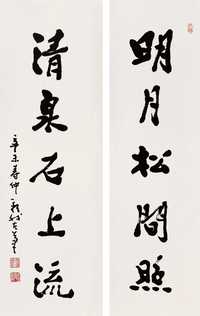 明月松間照
清泉石上流
辛未春仲